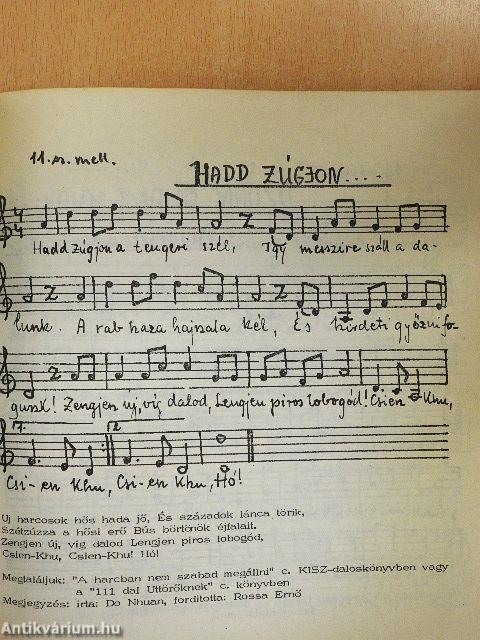 11. sz. mell.
HADD ZÚGJON....
Hadd zúgjon a tengeri szél, Így messzire száll a da-
lunk. A rab haza hajnala kél, És hirdeti győzni fo-
gunk! Zengjen uj, víg dalod, Lengjen piros lobogód! Csien Khu,
1. 2.
Csi-en Khu, Csi-en Khu, Hó!
Uj harcosok hős hada jő, És századok lánca törik,
Szétzúzza a hősi erő Bús börtönök éjfalait.
Zengjen új, vig dalod Lengjen piros lobogód,
Csien-Khu, Csien-Khu! Hó!
Megtaláljuk: "A harcban nem szabad megállni" c. KISZ-daloskönyvben vagy
a "111 dal Uttörőknek" c. könyvben
Megjegyzés: irta: Do Nhuan, forditotta: Rossa Ernő
Antikvárium.hu